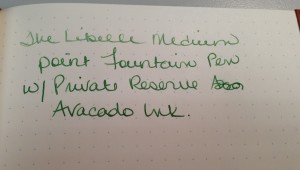 The Libelle Medium
point Fountain Pen
w/ Private Reserve
Avacado Ink.